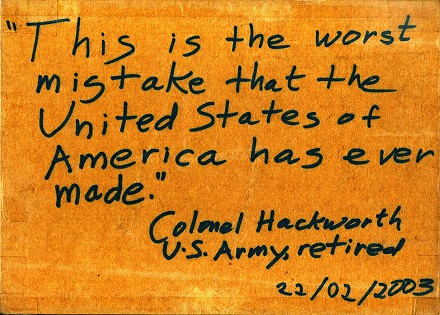 "This is the worst
mistake that the
United States of
America has ever
made."
Colonel Hackworth
U.S. Army, retired
22/02/2003